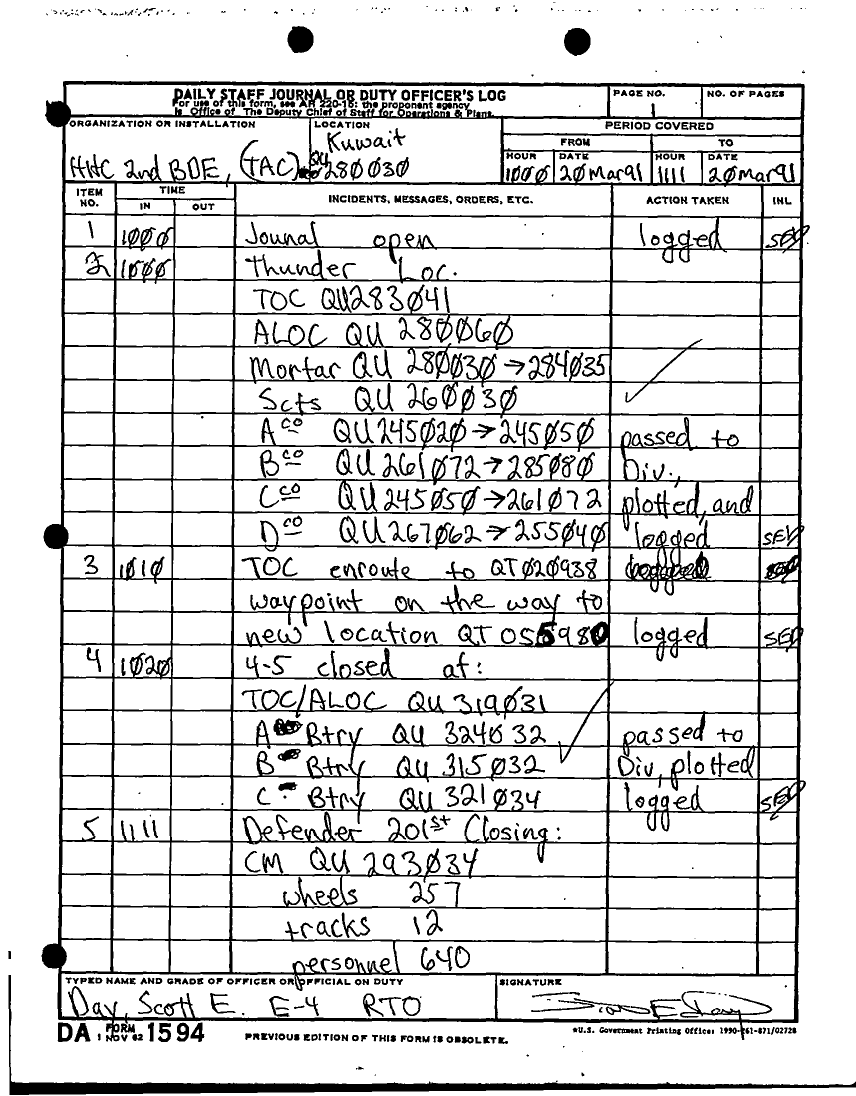 DAILY STAFF JOURNAL OR DUTY OFFICER'S LOG
For use of this form, see AR 220-15; the proponent agency
is Office of The Deputy Chief of Staff for Operations & Plans.
PAGE NO.
1
NO. OF PAGES
ORGANIZATION OR INSTALLATION
HHC 2nd BDE, (TAC)
LOCATION
Kuwait
QU 280030
PERIOD COVERED
FROM
TO
HOUR
1000
DATE
20Mar91
HOUR
1111
DATE
20Mar91
ITEM NO.
TIME
IN
OUT
INCIDENTS, MESSAGES, ORDERS, ETC.
ACTION TAKEN
INL
1 1000 Jounal open logged SED
2 1000 Thunder Loc.
TOC QU283041
ALOC QU 280060
Mortar QU 280030 → 284035
Scts QU 260030 ✓
A co QU245020 → 245050 passed to
B co QU 261072 → 285080 Div.,
C co QU245050 → 261072 plotted, and
D co QU 267062 → 255040 logged SED
3 1010 TOC enroute to QT020938
waypoint on the way to
new location QT 055980 logged SED
4 1020 4-5 closed at:
TOC/ALOC QU 319031
A Btry QU 324032 ✓ passed to
B Btry QU 315032 Div, plotted
C Btry QU 321034 logged SED
5 1111 Defender 201st Closing:
CM QU 293034
wheels 257
tracks 12
personnel 640
TYPED NAME AND GRADE OF OFFICER OR OFFICIAL ON DUTY
Day, Scott E. E-4 RTO
SIGNATURE
Scott E Day
DA FORM 1594
1 NOV 62
PREVIOUS EDITION OF THIS FORM IS OBSOLETE.
*U.S. Government Printing Office: 1990-261-871/02728